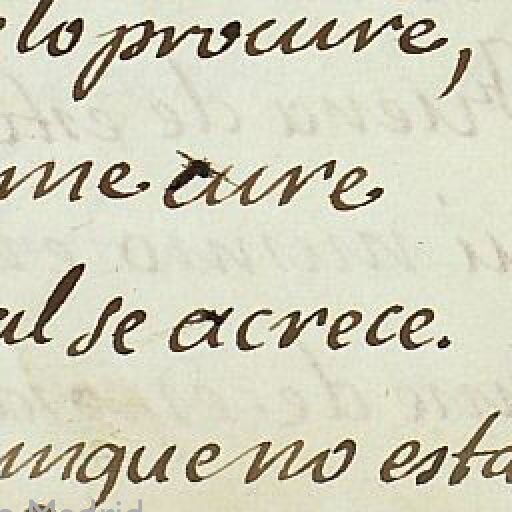 lo procure,
me cure
al se acrece.
unque no esta
Madrid